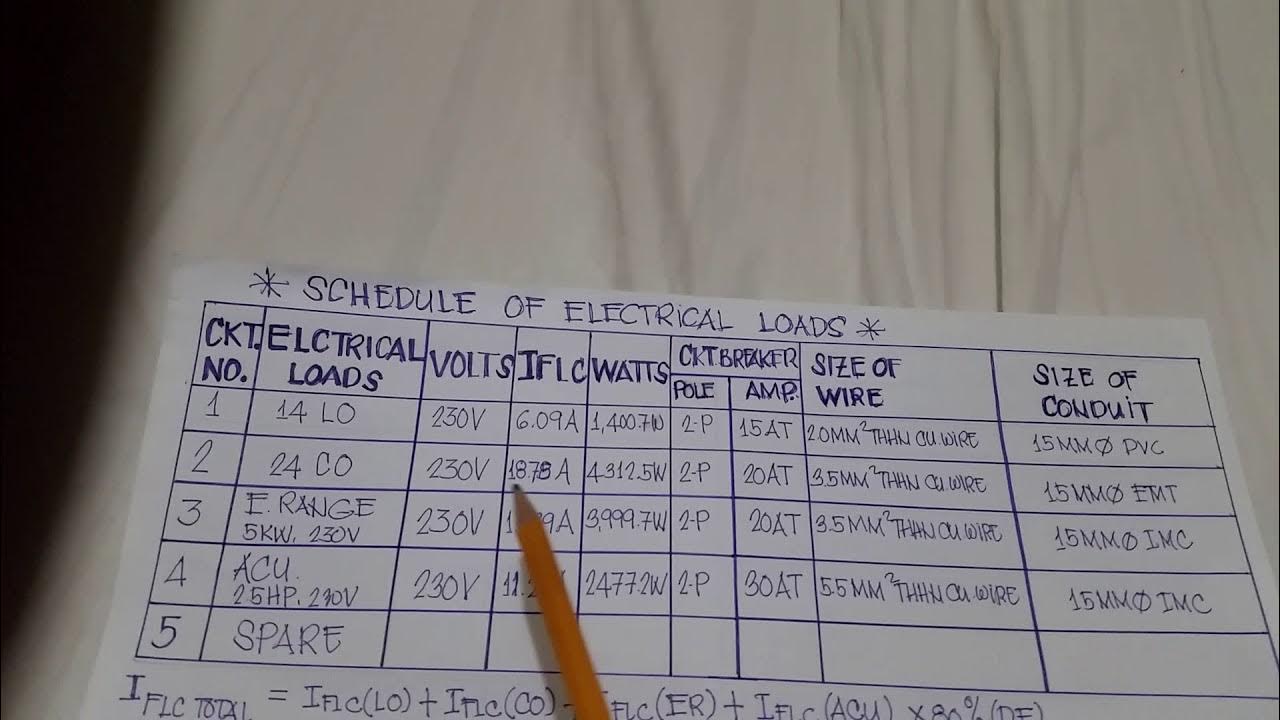 * SCHEDULE OF ELECTRICAL LOADS *
CKT. NO. ELCTRICAL LOADS VOLTS IFLC WATTS CKT.BREAKER POLE AMP. SIZE OF WIRE SIZE OF CONDUIT
1 14 LO 230V 6.09A 1,400.7W 2-P 15AT 2.0MM² THHN CU.WIRE 15MMØ PVC
2 24 CO 230V 18.75A 4312.5W 2-P 20AT 3.5MM² THHN CU.WIRE 15MMØ EMT
3 E. RANGE 5KW. 230V 230V 3,999.7W 2-P 20AT 3.5MM² THHN CU.WIRE 15MMØ IMC
4 ACU. 2.5HP. 230V 230V 2477.2W 2-P 30AT 5.5MM² THHN CU.WIRE 15MMØ IMC
5 SPARE
IFLC TOTAL = IFLC(LO) + IFLC(CO) IFLC(ER) + IFLC(ACU) X 80% (DF)